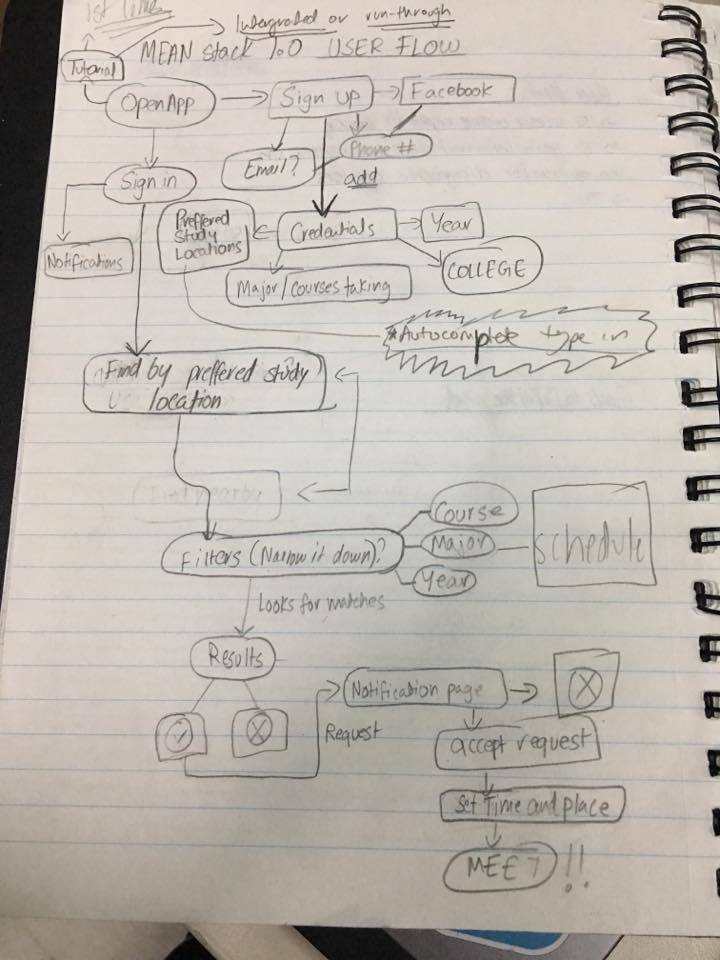 1st time
Intergrated or run-through
MEAN stack 1.0 USER FLOW
Tutorial
Open App
Sign up
Facebook
Phone #
Email?
add
Sign in
Notifications
Preffered
Study
Locations
Credentials
Year
COLLEGE
Major/courses taking
*Autocomplete type in
Find by preffered study
location
Filters (Narrow it down)?
Course
Major
Year
schedule
Looks for matches
Results
Request
Notification page
accept request
Set Time and place
MEET!!